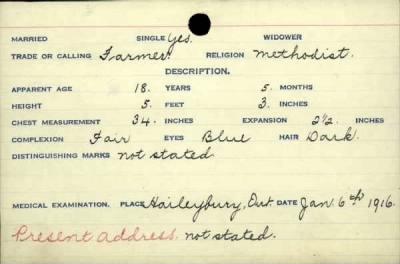 MARRIED SINGLE Yes. WIDOWER
TRADE OR CALLING Farmer. RELIGION Methodist.
DESCRIPTION.
APPARENT AGE 18. YEARS 5. MONTHS
HEIGHT 5. FEET 3. INCHES
CHEST MEASUREMENT 34. INCHES EXPANSION 2½. INCHES
COMPLEXION Fair EYES Blue HAIR Dark.
DISTINGUISHING MARKS not stated
MEDICAL EXAMINATION. PLACE Haileybury, Ont. DATE Jan. 6th 1916.
Present address. not stated.